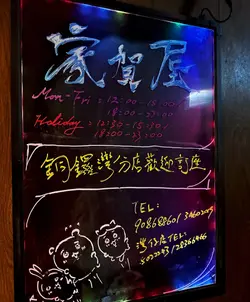 家賀屋
Mon-Fri : 12:00 - 15:00
18:00 - 23:00
Holiday : 12:30 - 15:30
18:00 - 23:00
銅鑼灣分店歡迎訂座
TEL:
灣仔店TEL: